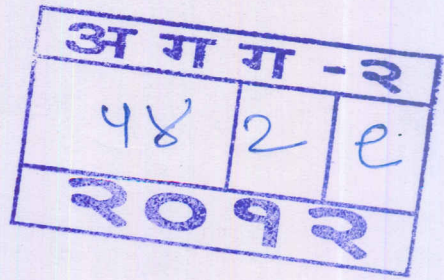 अ ग ग - २
५४ 2 ९
२०१२